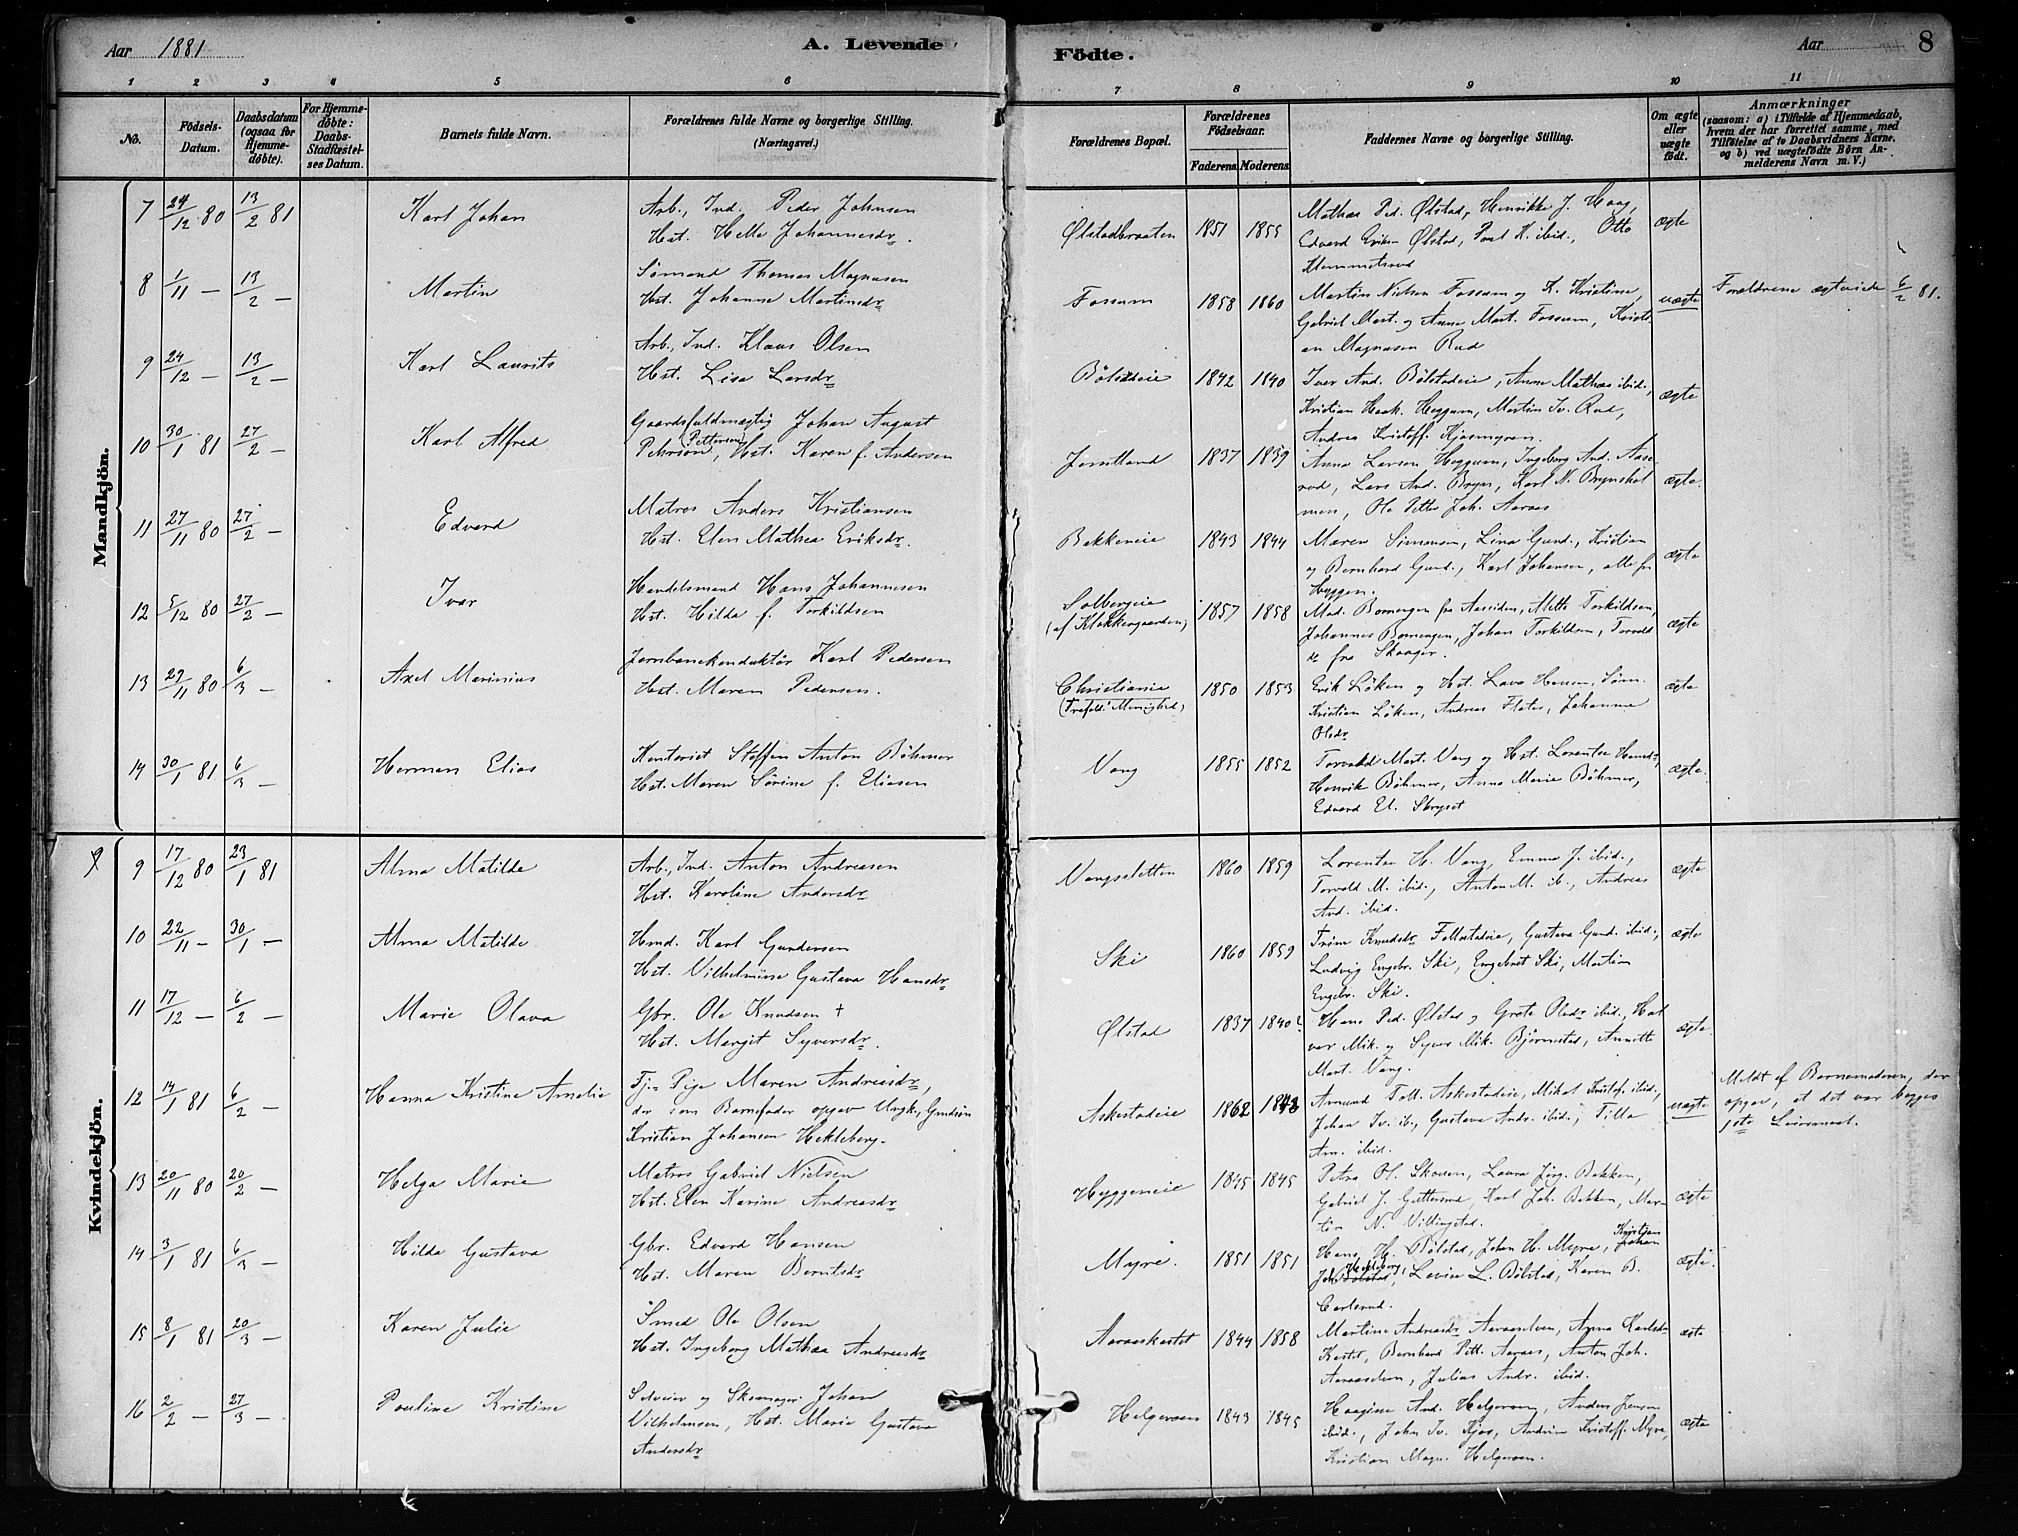 Aar 1881
A. Levende
Födte.
Aar
8
1 2 3 4 5 6 7 8 9 10 11
No.
Födsels-
Datum.
Daabsdatum
(ogsaa for
Hjemme-
döbte).
For Hjemme-
döbte:
Daabs-
Stadfæstel-
ses Datum.
Barnets fulde Navn.
Forældrenes fulde Navne og borgerlige Stilling.
(Næringsvei.)
Forældrenes Bopæl.
Forældrenes
Födselsaar.
Faderens. Moderens.
Faddernes Navne og borgerlige Stilling.
Om ægte
eller
uægte
födt.
Anmærkninger
(saasom: a) i Tilfælde af Hjemmedaab,
hvem der har forrettet samme, med
Tilföielse af to Daabsvidners Navne,
og b) ved uægtefödte Börn An-
melderens Navn m. V.)
Mandkjön.
7 24/12 80 13/2 81 Karl Johan
Arb., Ind. Peder Johnsen
Hst. Helle Johannesdr.
Ølstadbraaten 1851 1855
Mathea Ped. Ølstad, Henrikke J. Haag,
Edvard Eriksen Ølstad, Paul K. ibid., Otto
Klemmetsrud
ægte
8 1/11 — 13/2 — Martin
Sømand Thomas Magnusen
Hst. Johanne Martinsdr
Fossum 1858 1860
Martin Nielsen Fossum og K. Kristine,
Gabriel Mart. og Anne Mart. Fossum, Kristi-
an Magnusen Rud
uægte
Forældrene ægteviede 6/2 81.
9 24/12 — 13/2 — Karl Laurits
Arb., Ind. Klaus Olsen
Hst. Lisa Larsdr
Bølstadeie 1842 1840
Iver And. Bølstadeie, Anne Mathea ibid.,
Kristian Haak. Heggum, Martin Iv. Rud,
Andrea Kristoff. Kjosmyren.
ægte
10 30/1 81 27/2 — Karl Alfred
Gaardsfuldmægtig Johan August
Pehrson (Pettersen), Hst. Karen f. Andersen
Jemtland 1837 1839
Anna Larsen Heggum, Ingeborg And. Aase-
rud, Lars And. Bryn, Karl N. Brynshol-
men, Ole Petter Joh. Aaraas
ægte.
11 27/11 80 27/2 — Edvard
Matros Anders Kristiansen
Hst. Elen Mathea Eriksdr.
Bakkeneie 1843 1844
Maren Simensen, Lina Gund., Kristian
og Bernhard Gund., Karl Johansen, alle fr.
Hyggen.
ægte
12 5/12 80 27/2 — Ivar
Handelsmand Hans Johannesen
Hst. Hilda f. Torkildsen
Solbergeie
(af Klokkergaarden) 1857 1858
Mad. Bornengen fra Aasiden, Alette Torkildsen,
Johannes Bornengen, Johan Torkildsen, Torvald
de fra Skoger.
ægte
13 29/11 80 6/3 — Axel Marinius
Jernbanekonduktør Karl Pedersen
Hst. Maren Pedersen.
Christiania
(Trefold. Menighed) 1850 1853
Erik Løken og Hst. Lava Hansen, Sønn.
Kristian Løken, Andreas Flaten, Johanne
Olsdr
ægte
14 30/1 81 6/3 — Herman Elias
Kontorist Steffen Anton Bøhmer
Hst. Maren Sørine f. Eliasen
Vang 1855 1852
Torvald Mart. Vang og Hst. Lorentse Hansdr,
Henrik Bøhmer, Anna Marie Bøhmer,
Edvard El. Skryset
ægte.
Kvindekjön.
9 9 17/12 80 23/1 81 Alma Matilde
Arb., Ind. Anton Andreasen
Hst. Karoline Andersdr
Vangssletten 1860 1859
Lorentse H. Vang, Emma J. ibid.,
Torvald M. ibid., Anton M. ib., Andreas
And. ibid.
ægte
10 22/11 — 30/1 — Alma Matilde
Hmd. Karl Gundersen
Hst. Vilhelmine Gustava Hansdr
Ski 1860 1859
Trine Knudsdr Follestadeie, Gustava Gund. ibid.,
Ludvig Engebr. Ski, Engebret Ski, Martin
Engebr. Ski.
ægte
11 17/12 — 6/2 — Marie Olava
Gbr. Ole Knudsen +
Hst. Margit Syversdr.
Ølstad 1837 1840?
Hans Ped. Ølstad og Grete Olsdr ibid., Hal-
vor Mik. og Syver Mik. Bjørnestad, Annette
Mart. Vang.
ægte
12 14/1 81 6/2 — Hanna Kristine Amalie
Tj.- Pige Maren Andreasdr,
der som Barnefader opgav Ungk., Gmdsøn
Kristian Johansen Hekleberg.
Askestadeie 1862 1842
Amund Toll. Askestadeie, Mikal Kristof. ibid.,
Johan Iv. ib., Gustava Andr. ibid., Tilla
Am. ibid.
uægte
Meldt af Barnemoderen, der
opgav, at det var begges
1ste Leiermaal.
13 20/11 80 20/2 — Helga Marie
Matros Gabriel Nielsen
Hst. Elen Karine Andreasdr
Hyggeneie 1845 1845
Petra Ol. Skauen, Laura Jørg. Bakken,
Gabriel J. Guttersrud, Karl Joh. Bakken, Mar-
tin N. Villingstad.
ægte
14 3/1 81 6/3 — Hilda Gustava
Gbr. Edvard Hansen
Hst. Maren Berntsdr
Myre. 1851 1851
Hans H. Bølstad, Johan H. Myre, Kristian Johan
Joh. Hekleberg, Lovise L. Bølstad, Karen B.
Carlsrud.
ægte.
15 8/1 81 20/3 — Karen Julie
Smed Ole Olsen
Hst. Ingeborg Mathea Andreasdr
Aaraaskastet 1844 1858
Martine Andreasdr Aaraaselven, Anna Karlsdr
Kastet, Bernhard Pett. Aaraas, Anton Joh.
Aaraaselven, Julius Andr. ibid.
ægte
16 2/2 — 27/3 — Pauline Kristine
Selveier og Skomager Johan
Vilhelmsen, Hst. Marie Gustava
Andersdr
Helgeraen 1843 1845
Haagine And. Helgeraen, Anders Jensen
ibid., John Iv. Kjos, Andrine Kristoff. Myre,
Kristian Magn. Helgeraen.
ægte